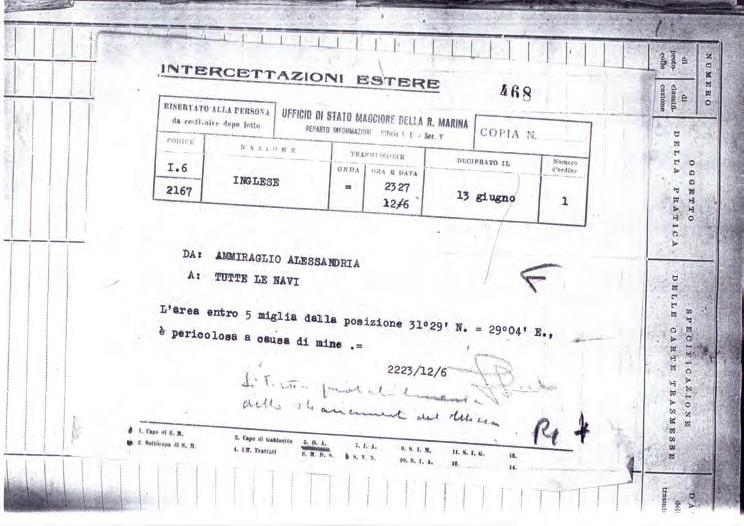 INTERCETTAZIONI ESTERE
468
RISERVATO ALLA PERSONA
da restituire dopo letto
UFFICIO DI STATO MAGGIORE DELLA R. MARINA
REPARTO INFORMAZIONI Ufficio I. E - Sez. V
COPIA N.
CODICE
NAZIONE
TRASMISSIONE
ONDA
ORA E DATA
DECIFRATO IL
Numero
d'ordine
I.6
2167
INGLESE
=
2327
12/6
13 giugno
1
DA: AMMIRAGLIO ALESSANDRIA
A: TUTTE LE NAVI
L'area entro 5 miglia dalla posizione 31°29' N. = 29°04' E.,
è pericolosa a causa di mine .=
2223/12/6
Si tratta probabilmente
dello sbarramento del
1. Capo di S. M.
2. Sottocapo di S. M.
3. Capo di Gabinetto
4. Uff. Trattati
5. O. A.
6. M. D. S.
7. I. A.
8. S. V. N.
9. S. I. M.
10. S. I. A.
11. S. I. G.
12.
13.
14.
NUMERO
di
proto-
collo
di
classifi-
cazione
OGGETTO
DELLA PRATICA
SPECIFICAZIONE
DELLE CARTE TRASMESSE